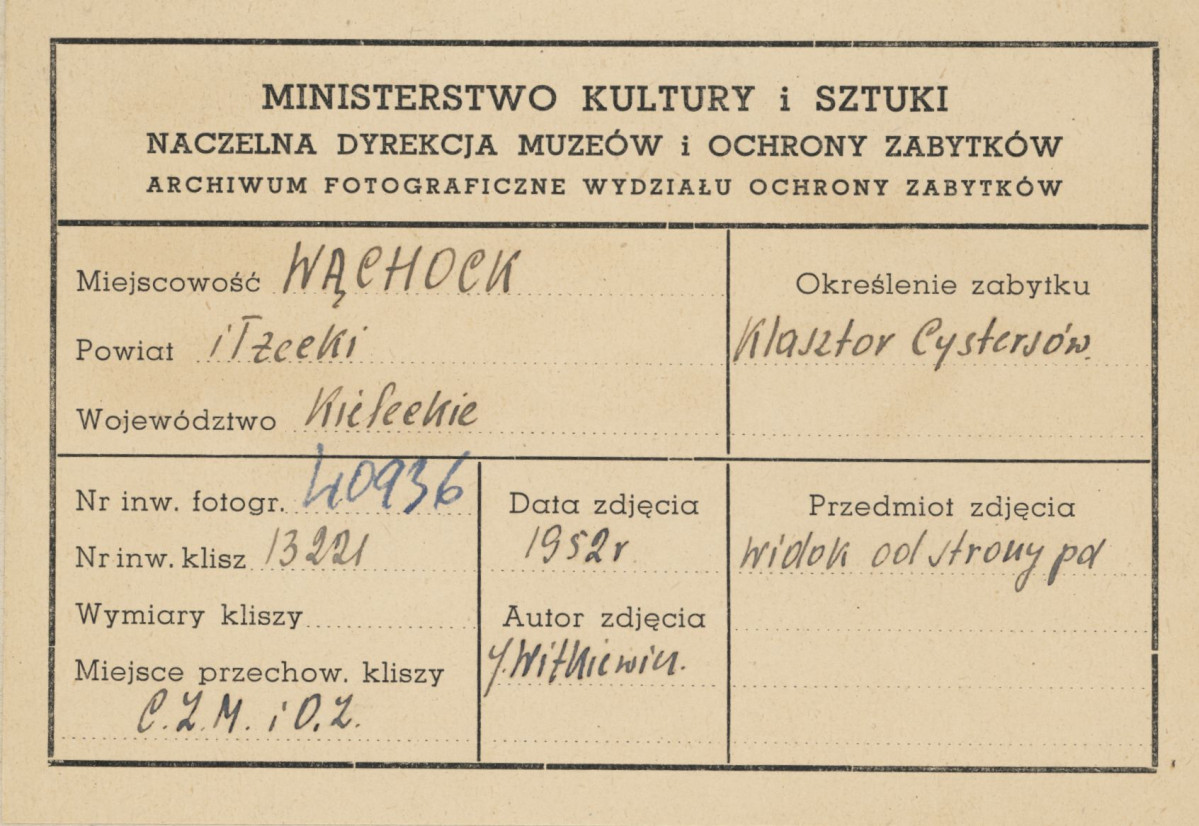 MINISTERSTWO KULTURY i SZTUKI
NACZELNA DYREKCJA MUZEÓW i OCHRONY ZABYTKÓW
ARCHIWUM FOTOGRAFICZNE WYDZIAŁU OCHRONY ZABYTKÓW
Miejscowość WĄCHOCK
Powiat iłżecki
Województwo Kieleckie
Określenie zabytku
Klasztor Cystersów.
Nr inw. fotogr. 40936
Nr inw. klisz 13221
Wymiary kliszy
Miejsce przechow. kliszy
C.Z.M. i O.Z.
Data zdjęcia
1952 r
Autor zdjęcia
J. Witkiewicz.
Przedmiot zdjęcia
widok od strony pd